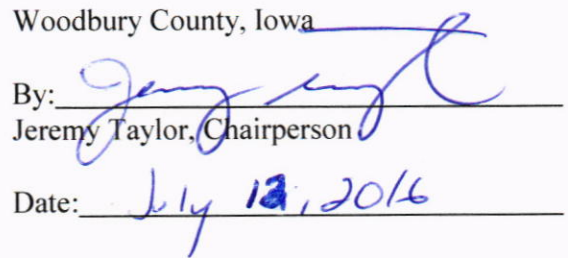 Woodbury County, Iowa
By:
Jeremy Taylor, Chairperson
Date: July 12, 2016